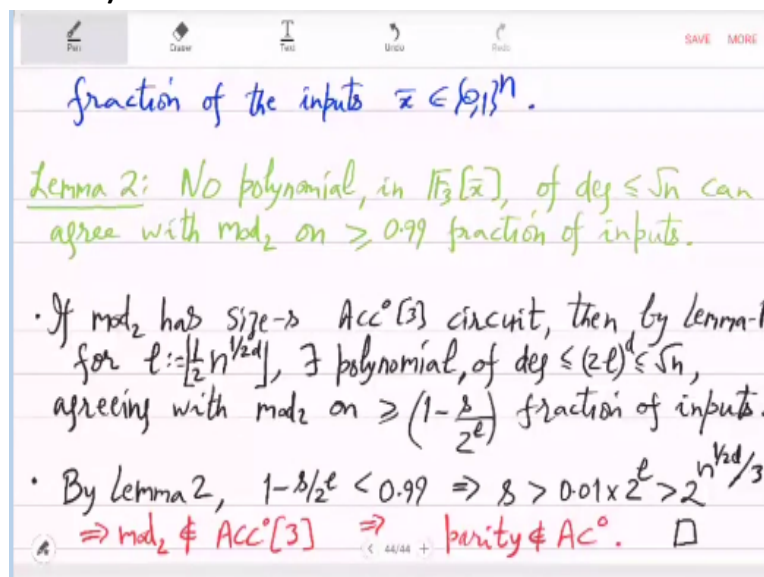 Pen Eraser Text Undo Redo SAVE MORE
fraction of the inputs x̄ ∈ {0,1}ⁿ.
Lemma 2: No polynomial, in F₃[x̄], of deg ≤ √n can
agree with mod₂ on ≥ 0.99 fraction of inputs.
· If mod₂ has size-s ACC⁰[3] circuit, then by Lemma-1
for l:=⌊½ n^{1/2d}⌋, ∃ polynomial, of deg ≤ (2l)^d ≤ √n,
agreeing with mod₂ on ≥ (1 - s/2^l) fraction of inputs.
· By Lemma 2, 1-s/2^l < 0.99 ⇒ s > 0.01×2^l > 2^{n^{1/2d}/3}
⇒ mod₂ ∉ ACC⁰[3] ⇒ parity ∉ AC⁰. □
< 44/44 +